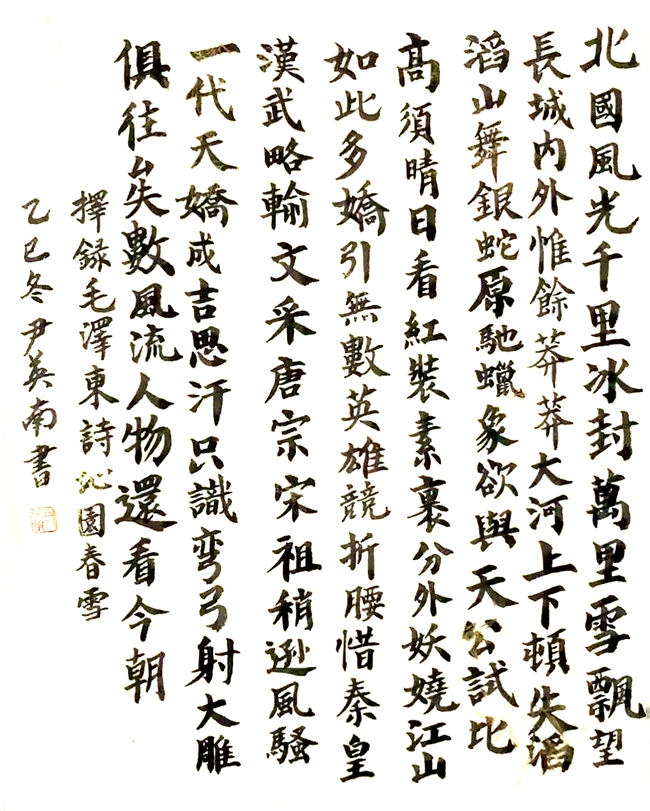 北國風光千里冰封萬里雪飄望
長城内外惟餘莽莽大河上下頓失滔
滔山舞銀蛇原馳蠟象欲與天公試比
高須晴日看紅裝素裹分外妖嬈江山
如此多嬌引無數英雄競折腰惜秦皇
漢武略輸文采唐宗宋祖稍遜風騷
一代天嬌成吉思汗只識弯弓射大雕
俱往矣數風流人物還看今朝
擇録毛澤東詩沁園春雪
乙巳冬尹英南書